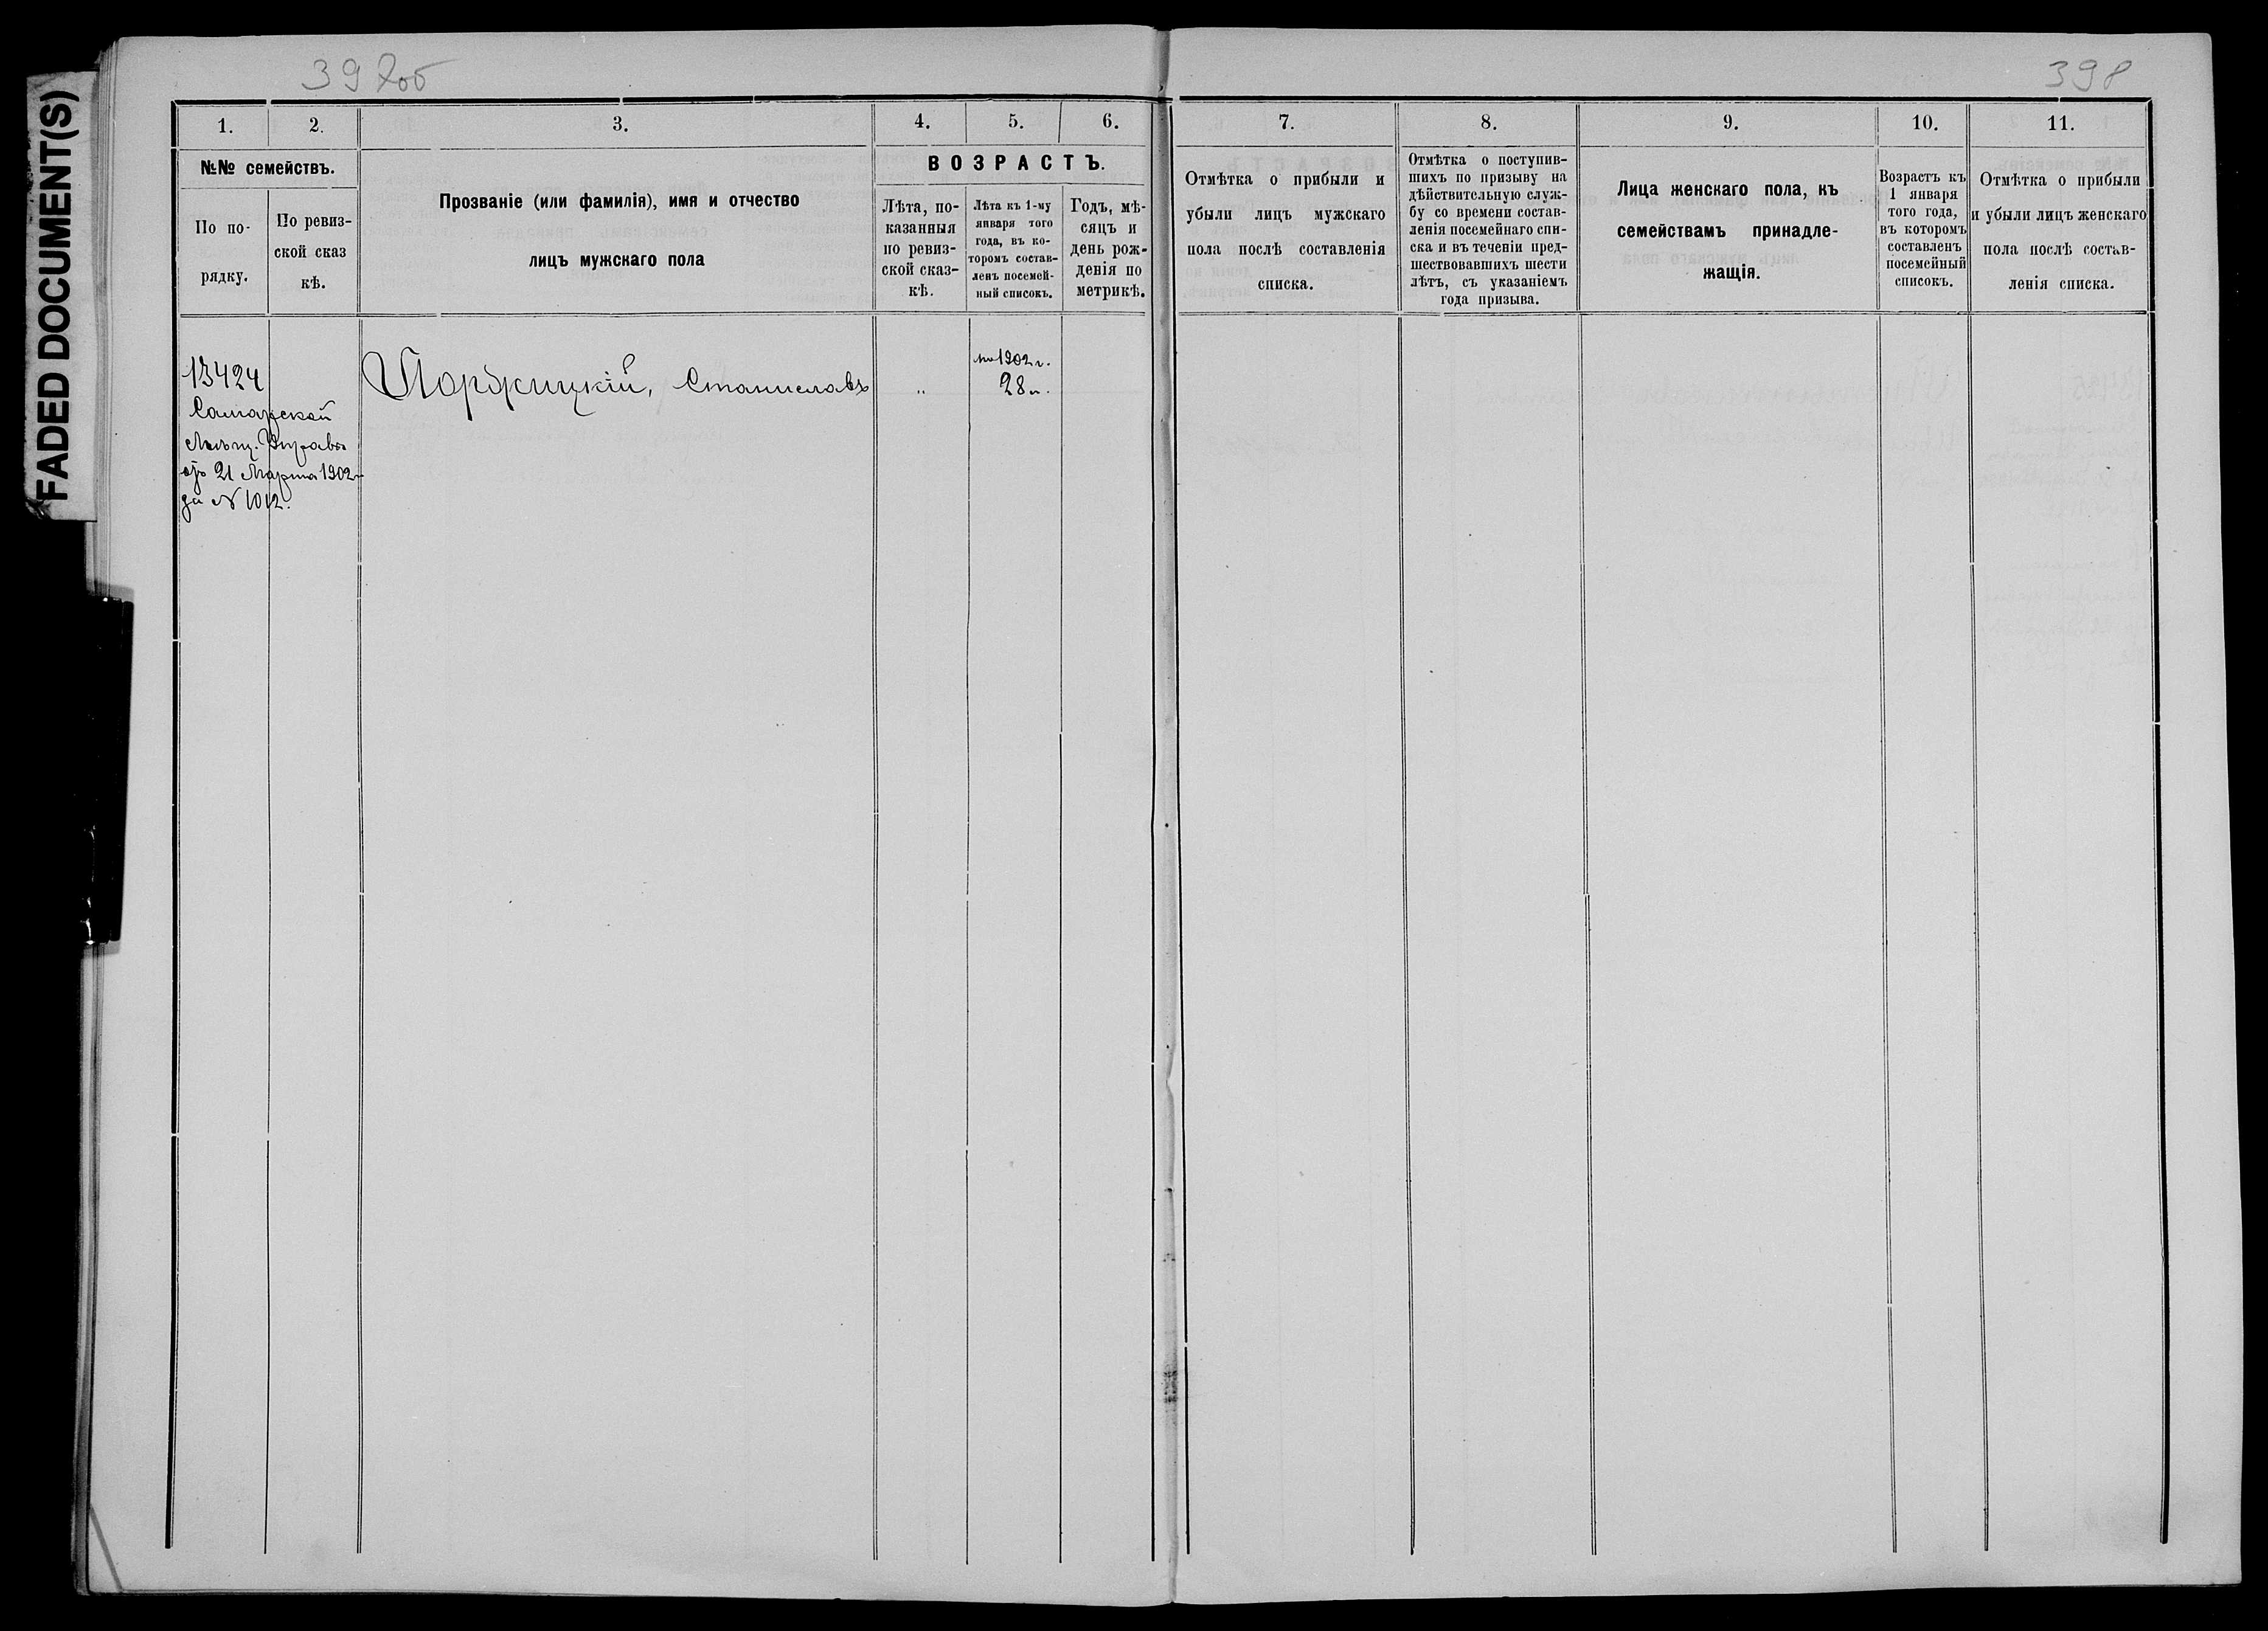 FADED DOCUMENT(S)
397об
398
1.
2.
3.
4.
5.
6.
7.
8.
9.
10.
11.
№№ семействъ.
По по-
рядку.
По ревиз-
ской сказ
кѣ.
Прозваніе (или фамилія), имя и отчество
лицъ мужскаго пола
ВОЗРАСТЪ.
Лѣта, по-
казанныя
по ревиз-
ской сказ-
кѣ.
Лѣта къ 1-му
января того
года, въ ко-
торомъ состав-
ленъ посемей-
ный списокъ.
Годъ, мѣ-
сяцъ и
день рож-
денія по
метрикѣ.
Отмѣтка о прибыли и
убыли лицъ мужскаго
пола послѣ составленія
списка.
Отмѣтка о поступив-
шихъ по призыву на
дѣйствительную служ-
бу со времени состав-
ленія посемейнаго спи-
ска и въ теченіи пред-
шествовавшихъ шести
лѣтъ, съ указаніемъ
года призыва.
Лица женскаго пола, къ
семействамъ принадле-
жащія.
Возрастъ къ
1 января
того года,
въ которомъ
составленъ
посемейный
списокъ.
Отмѣтка о прибыли
и убыли лицъ женскаго
пола послѣ состав-
ленія списка.
13424
Самарской
Мѣщ. Управы
отъ 21 Марта 1902 г
за № 1012.
Поржицкій, Станиславъ
"
на 1902 г.
28 л.